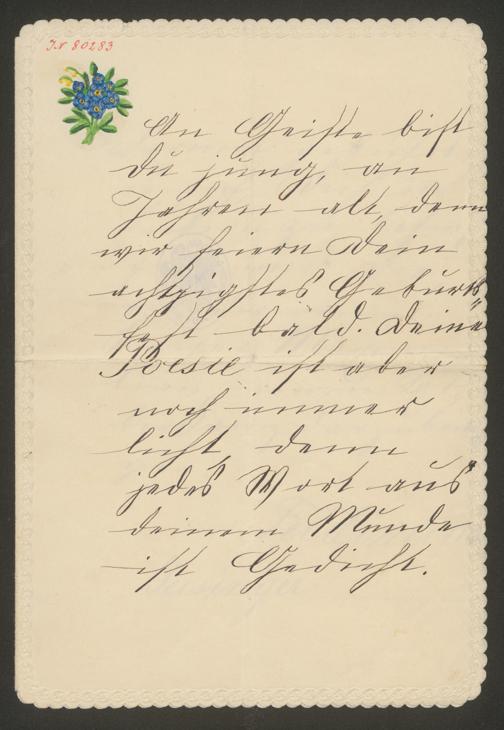 IN 80283
An Geiste bist
Du jung, an
Jahren alt, denn
wir feiern Dein
achtzigstes Geburts=
fest bald. Deine
Poesie ist aber
noch immer
licht, denn
jedes Wort aus
deinem Munde
ist Gedicht.